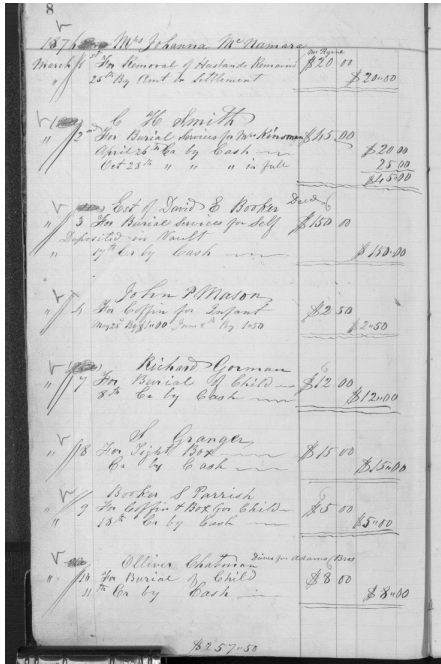 8
1876 Mrs Johanna McNamara
March 1st For Removal of Husbands Remains $20 00
" 25th By Cent in Settlement $20"00
C H Smith
" 2nd For Burial Services for Mrs Kinsman $45.00
April 26th Cr by Cash $20 00
Oct 28th " " " in full 25 00
$45"00
Est of David E Booker Decd
" 3 For Burial Services for Self $150 00
Deposited in Vault
" 17th Cr by Cash $150.00
John P Mason
" 4 For Coffin for Infant $2 50
May 25 By $1"00 June 2nd By 1"50 $2"50
Richard Gorman
" 7 For Burial of Child $12 00
8th Cr by Cash $12"00
Granger
" 8 For Tight Box $15 00
Cr by Cash $15"00
Booker S Parrish
" 9 For Coffin & Box for Child $5 00
" 18th Cr by Cash $5"00
Olliver Chatman Done for Adams Bros
" 10 For Burial of Child $8 00
11th Cr by Cash $8"00
$257"50